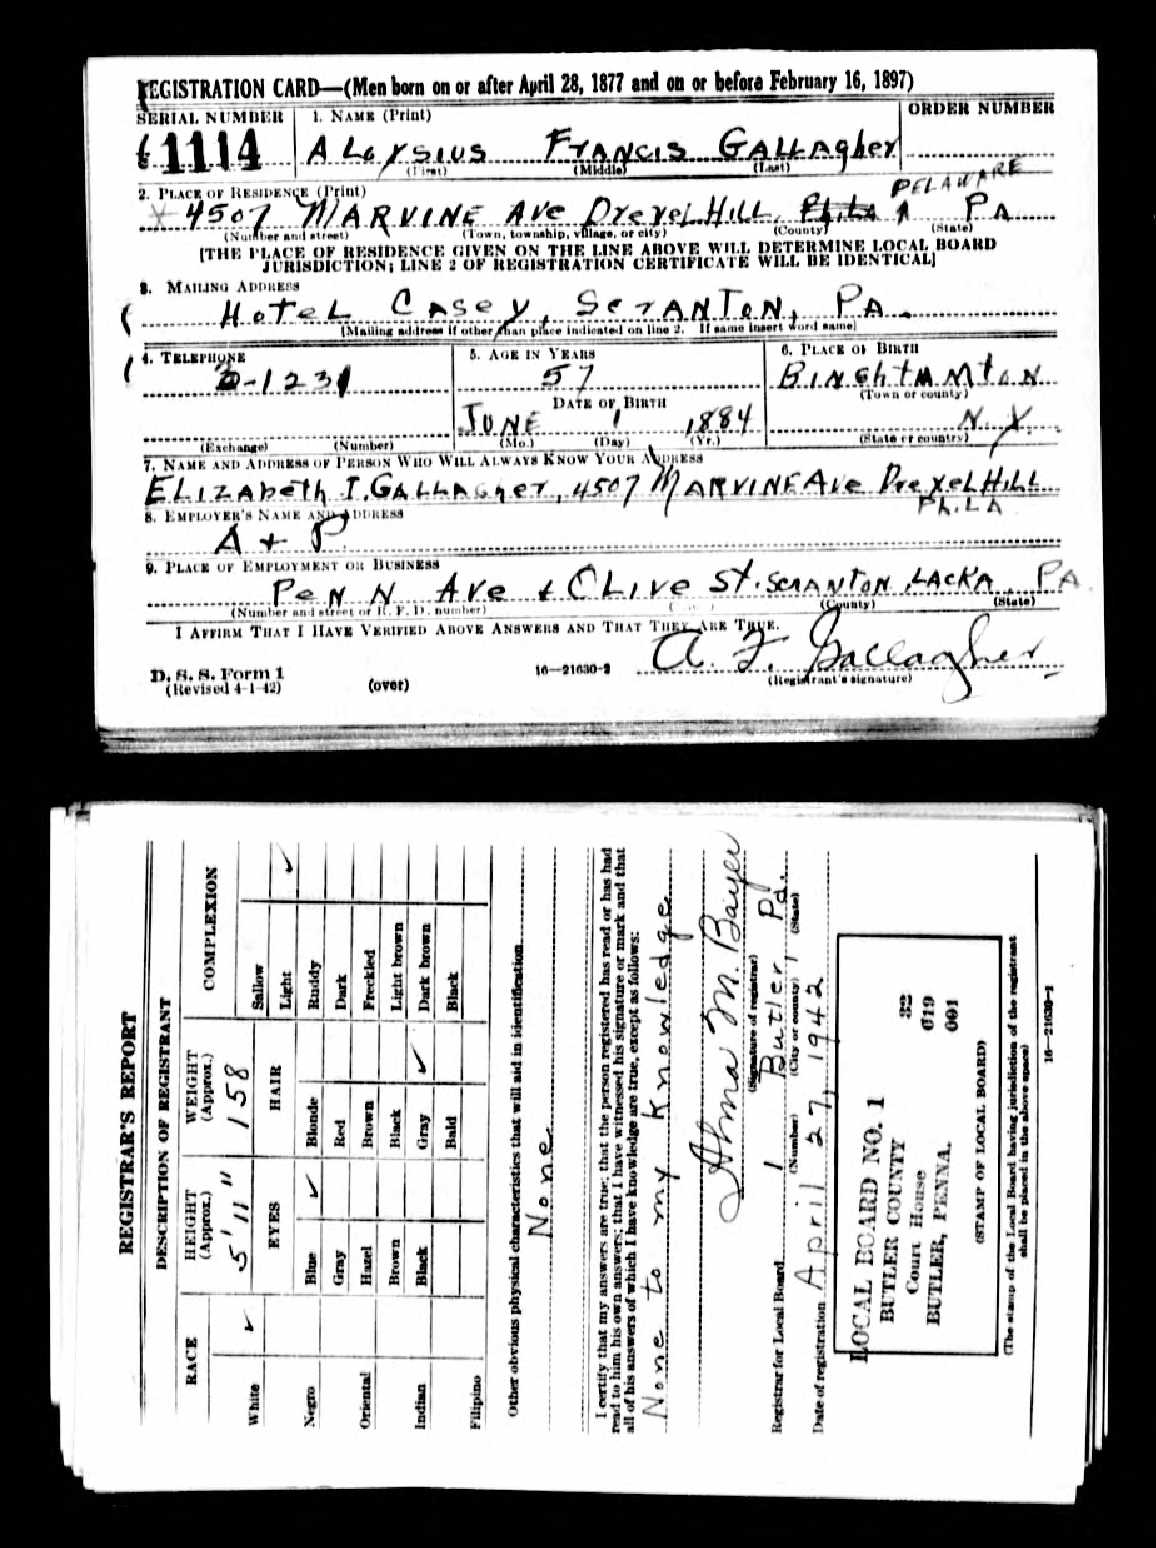 REGISTRATION CARD—(Men born on or after April 28, 1877 and on or before February 16, 1897)
SERIAL NUMBER 1. NAME (Print) ORDER NUMBER
1114 ALoysius FrANCIS GALLAGher
(First) (Middle) (Last)
2. PLACE OF RESIDENCE (Print) DELAWARE
4507 MARVINE Ave DrexeL HILL, PhiLa PA
(Number and street) (Town, township, village, or city) (County) (State)
[THE PLACE OF RESIDENCE GIVEN ON THE LINE ABOVE WILL DETERMINE LOCAL BOARD
JURISDICTION; LINE 2 OF REGISTRATION CERTIFICATE WILL BE IDENTICAL]
3. MAILING ADDRESS
HoteL CAsey, ScrANTON, PA.
(Mailing address if other than place indicated on line 2. If same insert word same)
4. TELEPHONE 5. AGE IN YEARS 6. PLACE OF BIRTH
3-1231 57 BINGhtAMtON
DATE OF BIRTH (Town or county)
JUNE 1 1884 N.Y.
(Exchange) (Number) (Mo.) (Day) (Yr.) (State or country)
7. NAME AND ADDRESS OF PERSON WHO WILL ALWAYS KNOW YOUR ADDRESS
ELIZAbeth I. GALLAGher, 4507 MARVINE Ave DrexeL HILL
PhiLA
8. EMPLOYER'S NAME AND ADDRESS
A + P.
9. PLACE OF EMPLOYMENT OR BUSINESS
PeNN Ave + OLive St. SCRANTON, LACK'A. PA
(Number and street or R. F. D. number) (County) (State)
I AFFIRM THAT I HAVE VERIFIED ABOVE ANSWERS AND THAT THEY ARE TRUE.
A. F. Gallagher
D. S. S. Form 1 16—21630-2
(Revised 4-1-42) (over) (Registrant's signature)
REGISTRAR'S REPORT
DESCRIPTION OF REGISTRANT
RACE HEIGHT (Approx.) WEIGHT (Approx.) COMPLEXION
5' 11" 158
White ✓ EYES HAIR Sallow
Light ✓
Negro Blue ✓ Blonde Ruddy
Gray Red Dark
Oriental Hazel Brown Freckled
Brown Black Light brown
Indian Black Gray ✓ Dark brown
Bald Black
Filipino
Other obvious physical characteristics that will aid in identification
None
I certify that my answers are true; that the person registered has read or has had
read to him his own answers; that I have witnessed his signature or mark and that
all of his answers of which I have knowledge are true, except as follows:
None to my knowledge
Alma M. Bayer
(Signature of registrar)
Registrar for Local Board 1 Butler, Pa.
(Number) (City or county) (State)
Date of registration April 27, 1942
LOCAL BOARD NO. 1 32
BUTLER COUNTY 019
Court House 001
BUTLER, PENNA.
(STAMP OF LOCAL BOARD)
(The stamp of the Local Board having jurisdiction of the registrant
shall be placed in the above space)
16—21630-1